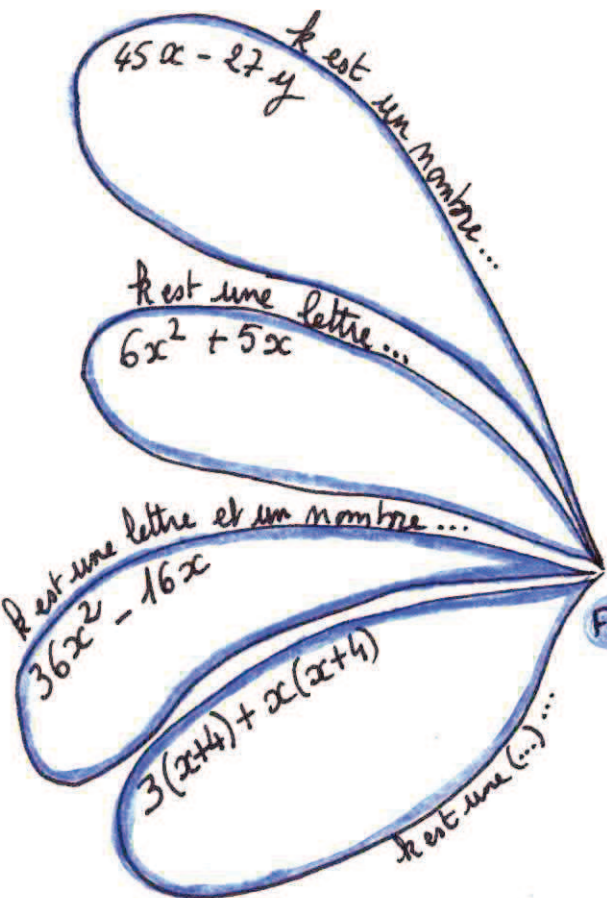 k est un nombre...
45x - 27y
k est une lettre...
6x² + 5x
k est une lettre et un nombre...
36x² - 16x
3(x+4) + x(x+4)
k est une (...)...
F